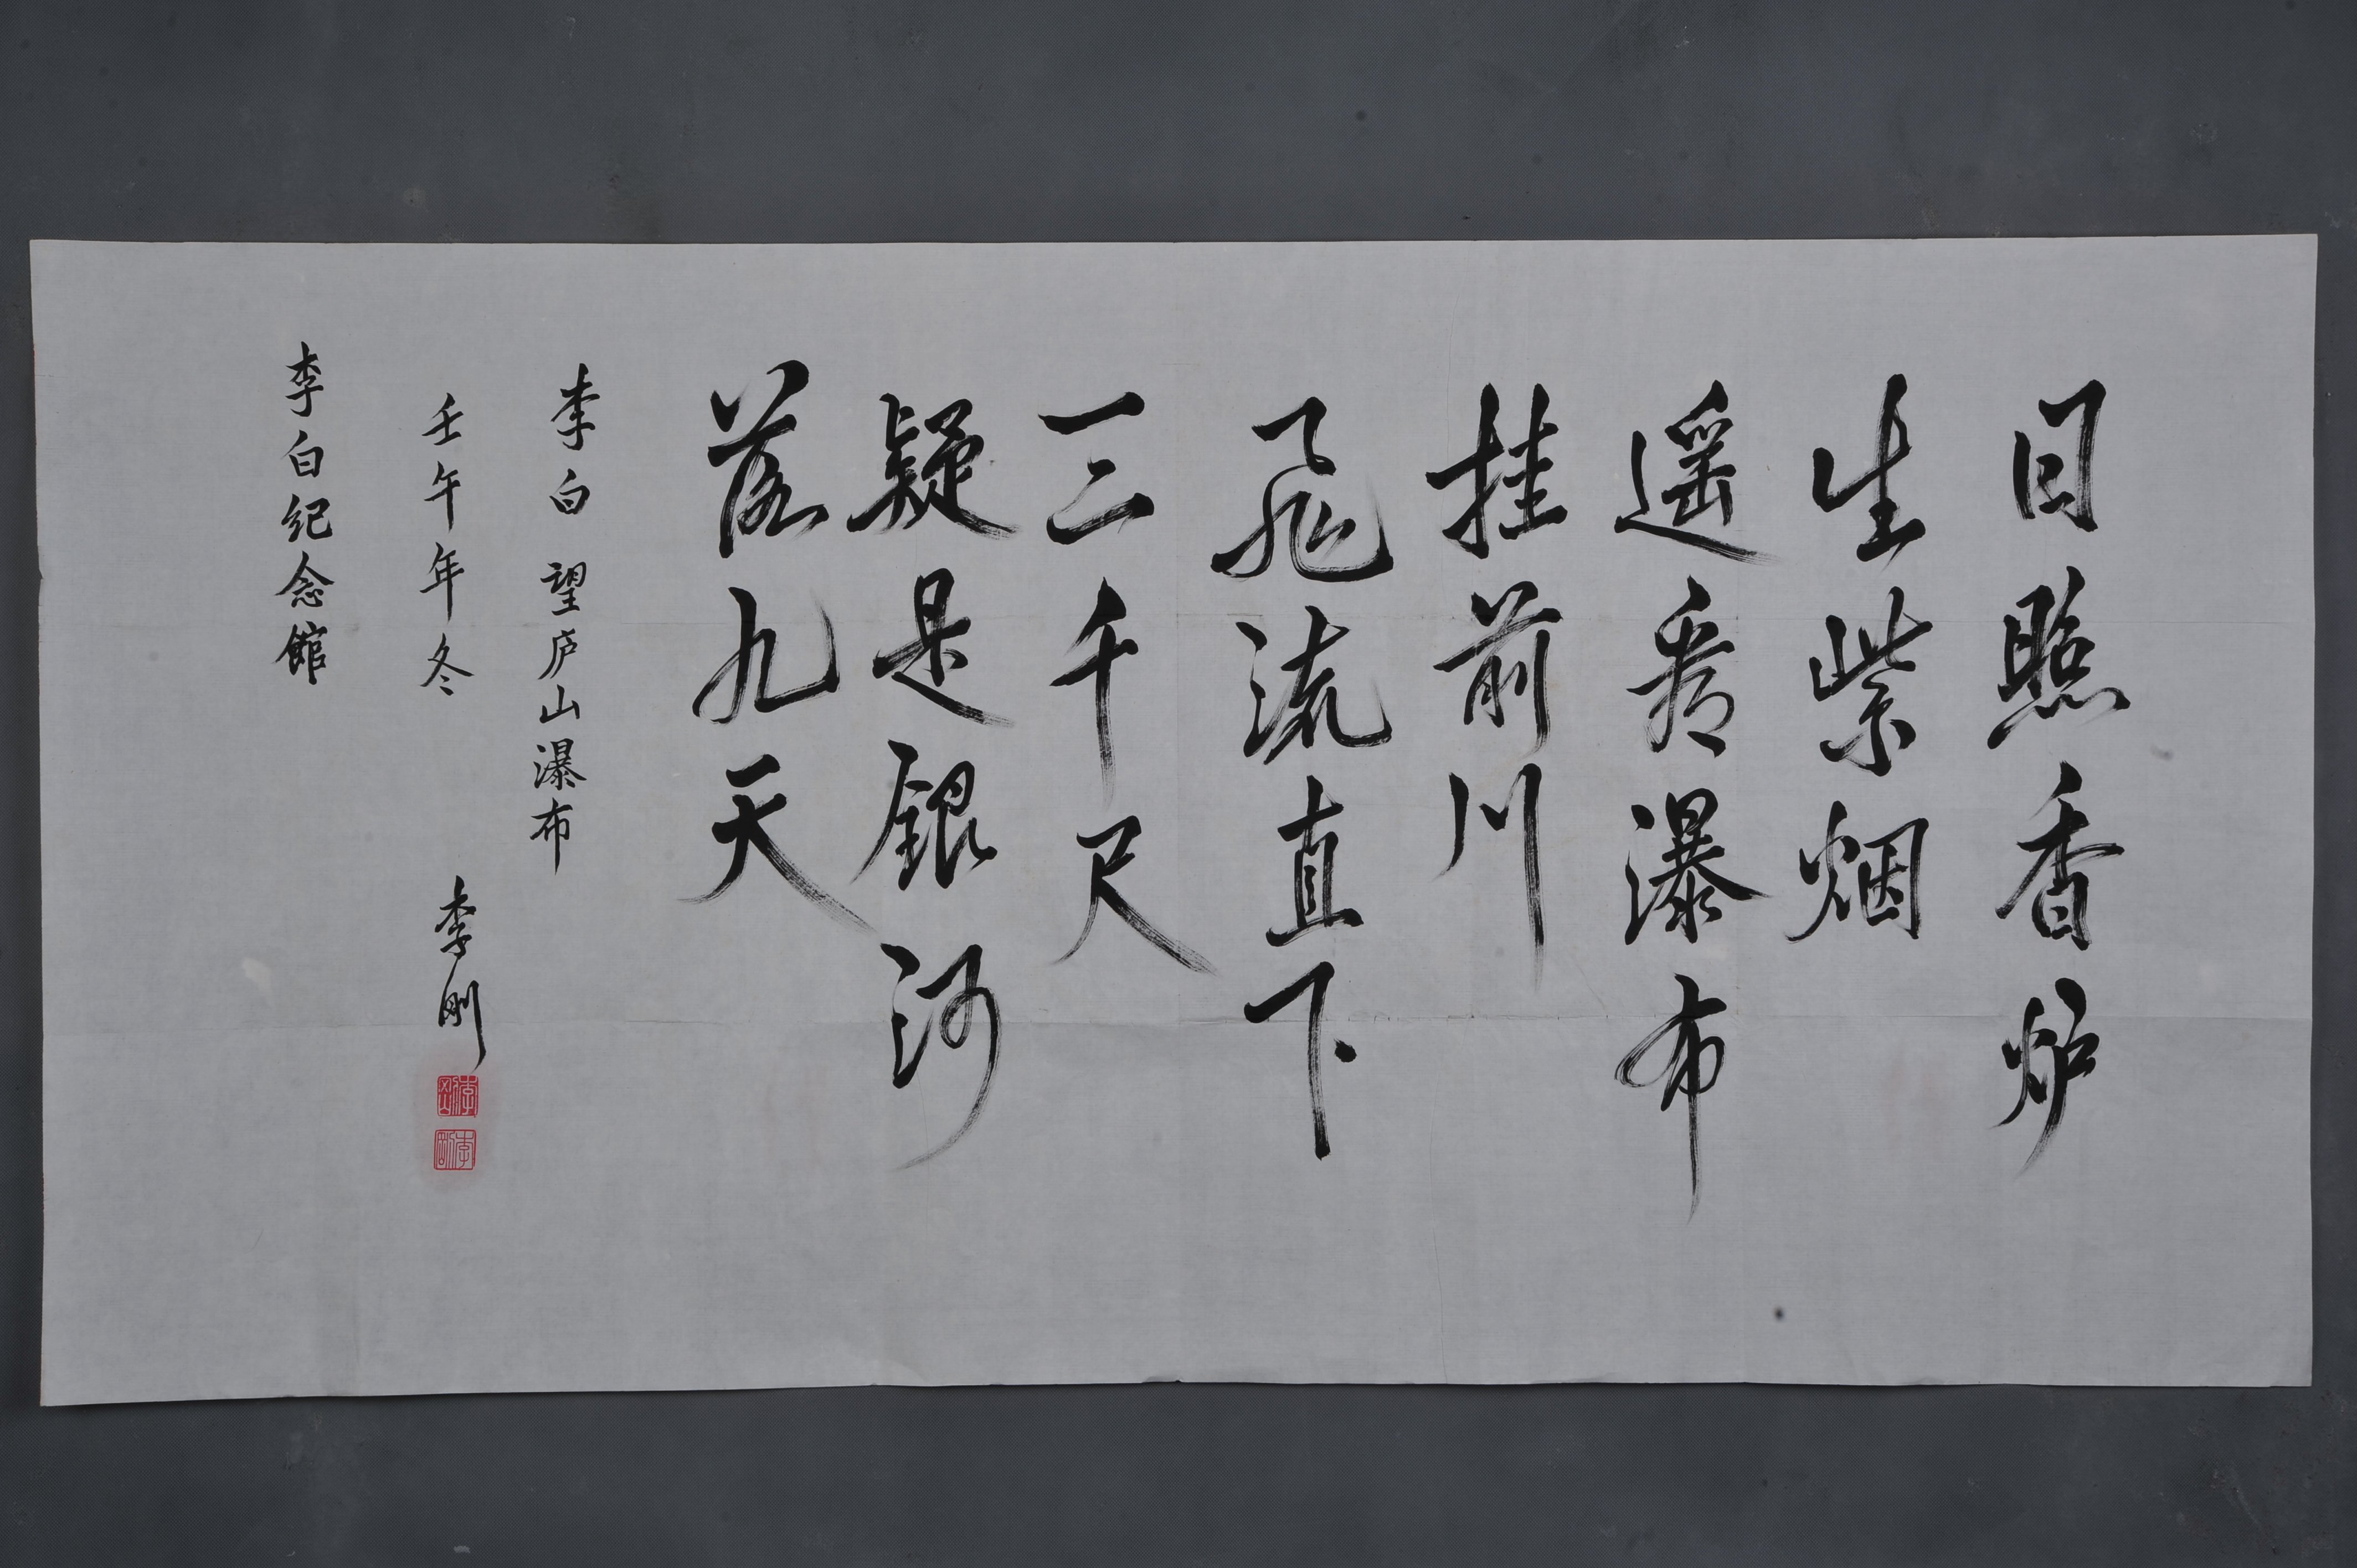 日照香炉
生紫烟
遥看瀑布
挂前川
飛流直下
三千尺
疑是銀河
落九天
李白 望庐山瀑布
壬午年冬 李刚
李白纪念館